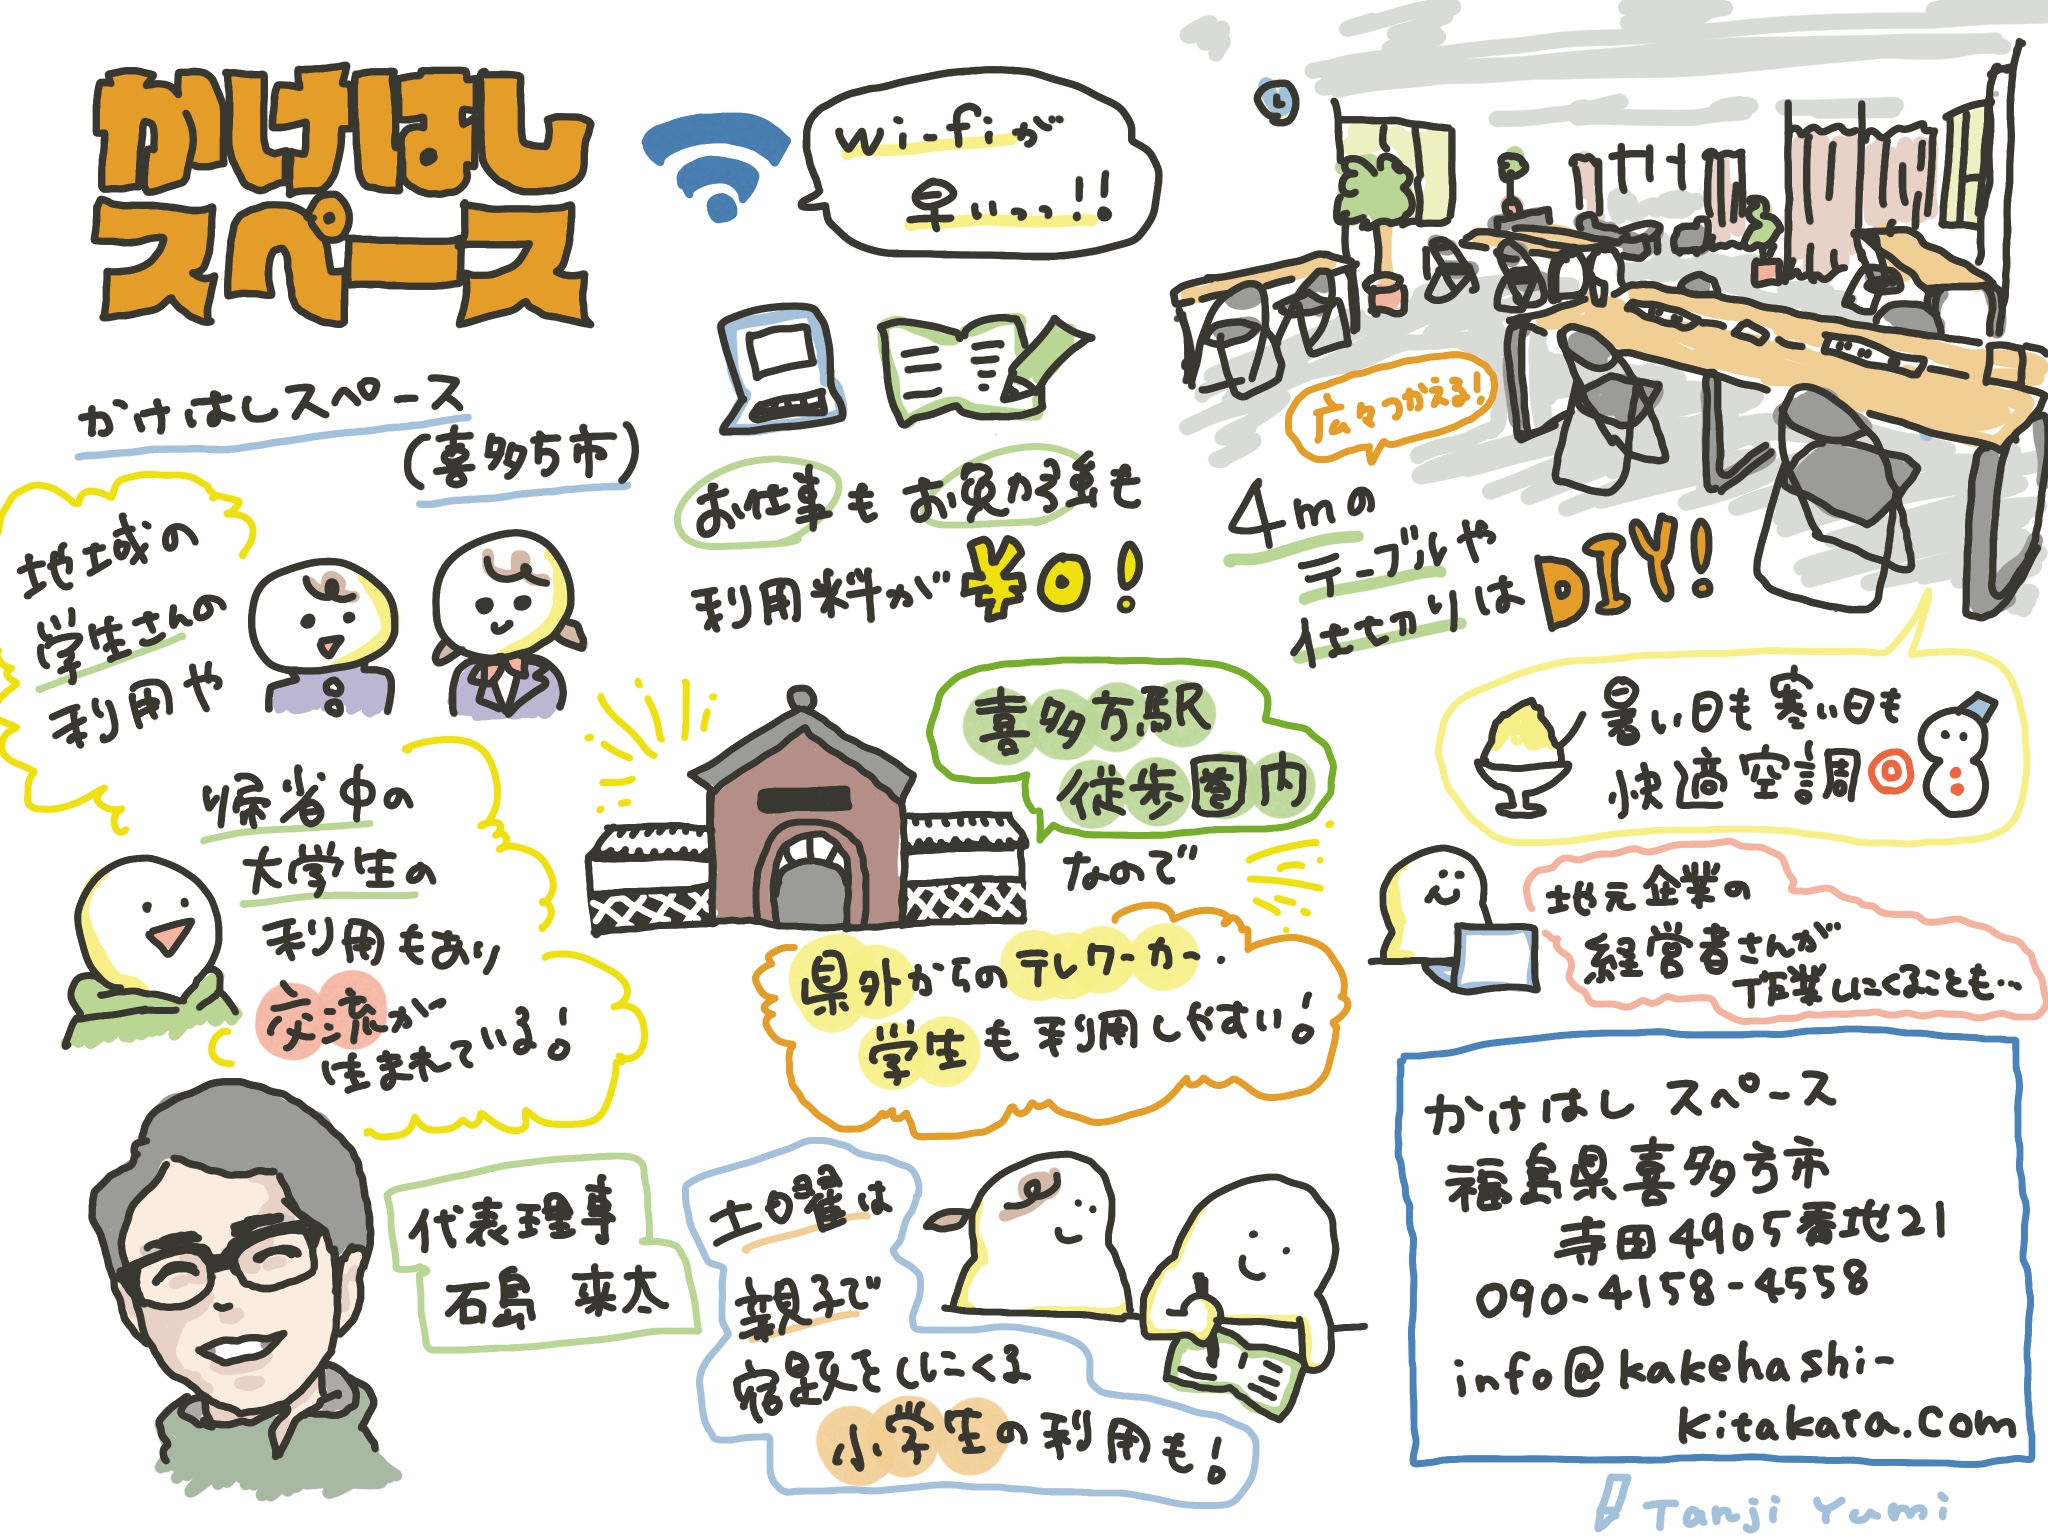 かけはし
スペース
wi-fiが
早いっっ!!
かけはしスペース
(喜多方市)
お仕事も お勉強も
利用料が ¥0!
広々つかえる!
4mの
テーブルや
仕切りは DIY!
地域の
学生さんの
利用や
帰省中の
大学生の
利用もあり
交流が
生まれている!
喜多方駅
徒歩圏内
なので
県外からのテレワーカー・
学生も利用しやすい!
暑い日も寒い日も
快適空調◎
地元企業の
経営者さんが
作業しにくることも…
代表理事
石島 来太
土曜は
親子で
宿題をしにくる
小学生の利用も!
かけはし スペース
福島県喜多方市
寺田4905番地21
090-4158-4558
info@kakehashi-
kitakata.com
Tanji Yumi